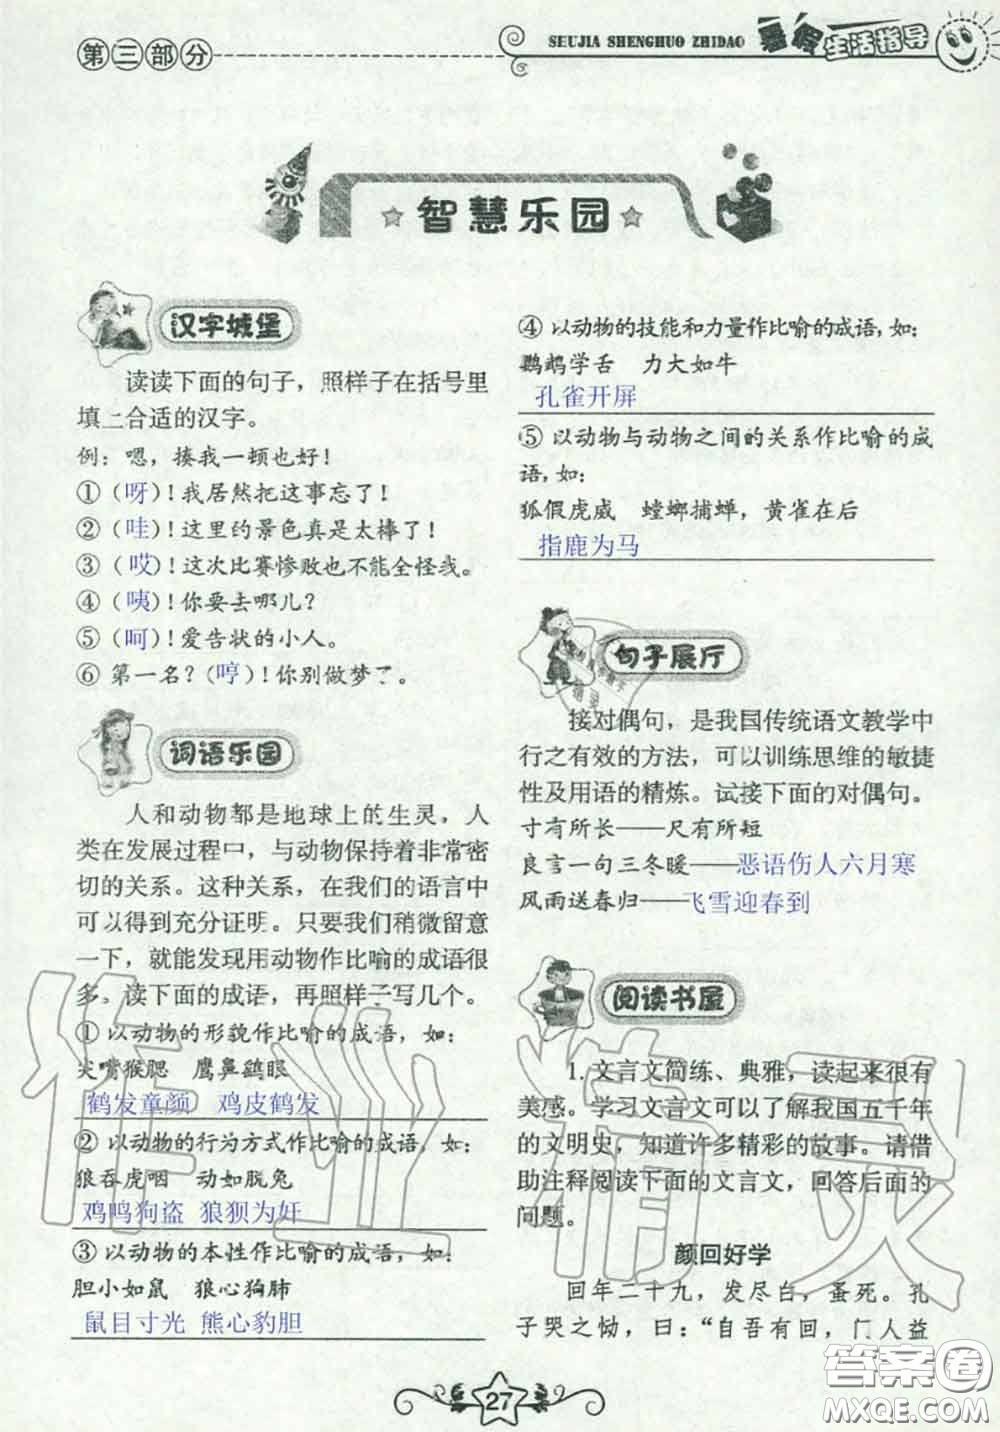 第三部分
SHUJIA SHENGHUO ZHIDAO
暑假生活指导
智慧乐园
汉字城堡
读读下面的句子，照样子在括号里
填上合适的汉字。
例：嗯，揍我一顿也好！
①（呀）！我居然把这事忘了！
②（哇）！这里的景色真是太棒了！
③（哎）！这次比赛惨败也不能全怪我。
④（咦）！你要去哪儿？
⑤（呵）！爱告状的小人。
⑥ 第一名？（哼）！你别做梦了。
词语乐园
人和动物都是地球上的生灵，人
类在发展过程中，与动物保持着非常密
切的关系。这种关系，在我们的语言中
可以得到充分证明。只要我们稍微留意
一下，就能发现用动物作比喻的成语很
多。读下面的成语，再照样子写几个。
① 以动物的形貌作比喻的成语，如：
尖嘴猴腮　鹰鼻鹞眼
鹤发童颜　鸡皮鹤发
② 以动物的行为方式作比喻的成语，如：
狼吞虎咽　动如脱兔
鸡鸣狗盗　狼狈为奸
③ 以动物的本性作比喻的成语，如：
胆小如鼠　狼心狗肺
鼠目寸光　熊心豹胆
④ 以动物的技能和力量作比喻的成语，如：
鹦鹉学舌　力大如牛
孔雀开屏
⑤ 以动物与动物之间的关系作比喻的成
语，如：
狐假虎威　螳螂捕蝉，黄雀在后
指鹿为马
句子展厅
接对偶句，是我国传统语文教学中
行之有效的方法，可以训练思维的敏捷
性及用语的精炼。试接下面的对偶句。
寸有所长——尺有所短
良言一句三冬暖——恶语伤人六月寒
风雨送春归——飞雪迎春到
阅读书屋
1. 文言文简练、典雅，读起来很有
美感。学习文言文可以了解我国五千年
的文明史，知道许多精彩的故事。请借
助注释阅读下面的文言文，回答后面的
问题。
颜回好学
回年二十九，发尽白，蚤死。孔
子哭之恸，曰：“自吾有回，门人益
27
作业精灵
答案圈
MXQE.COM